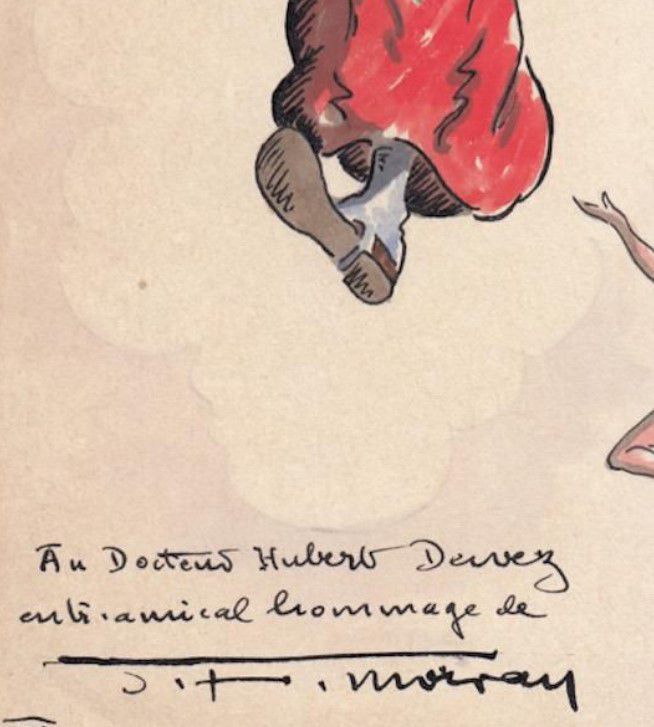 Au Docteur Hubert Devez
amical hommage de
J. H. Moreau